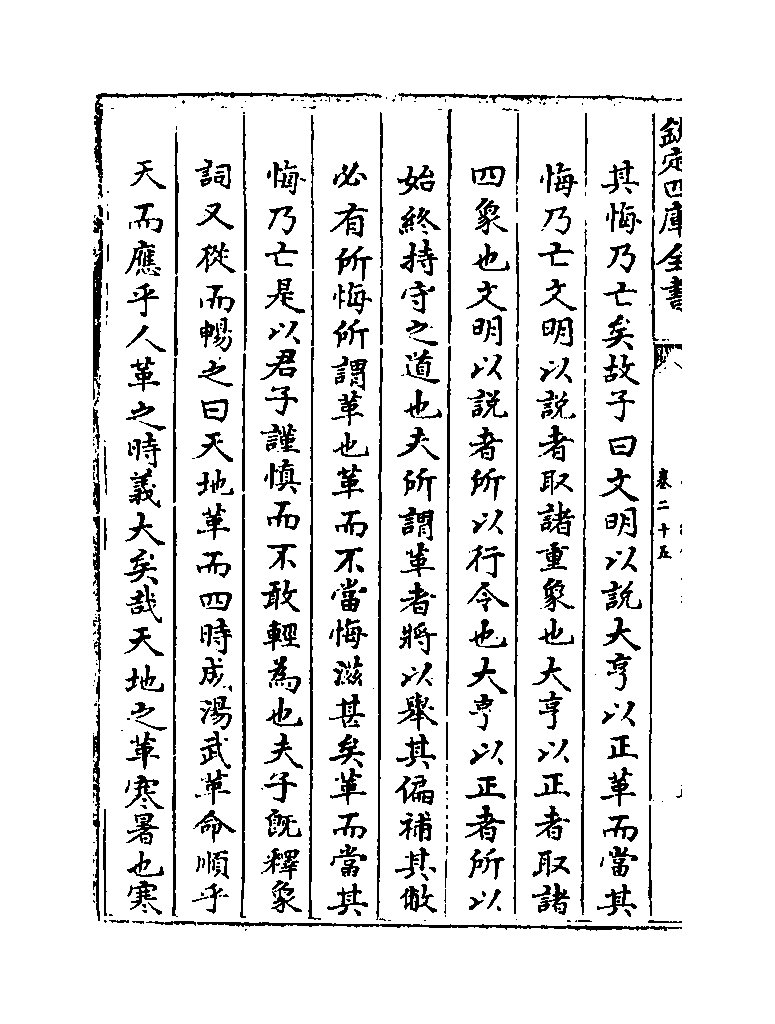 欽定四庫全書
卷二十五
其悔乃亡矣故子曰文明以説大亨以正革而當其
悔乃亡文明以説者取諸重象也大亨以正者取諸
四象也文明以説者所以行令也大亨以正者所以
始終持守之道也夫所謂革者將以舉其偏補其敝
必有所悔所謂革也革而不當悔滋甚矣革而當其
悔乃亡是以君子謹慎而不敢輕為也夫子既釋彖
詞又從而暢之曰天地革而四時成湯武革命順乎
天而應乎人革之時義大矣哉天地之革寒暑也寒